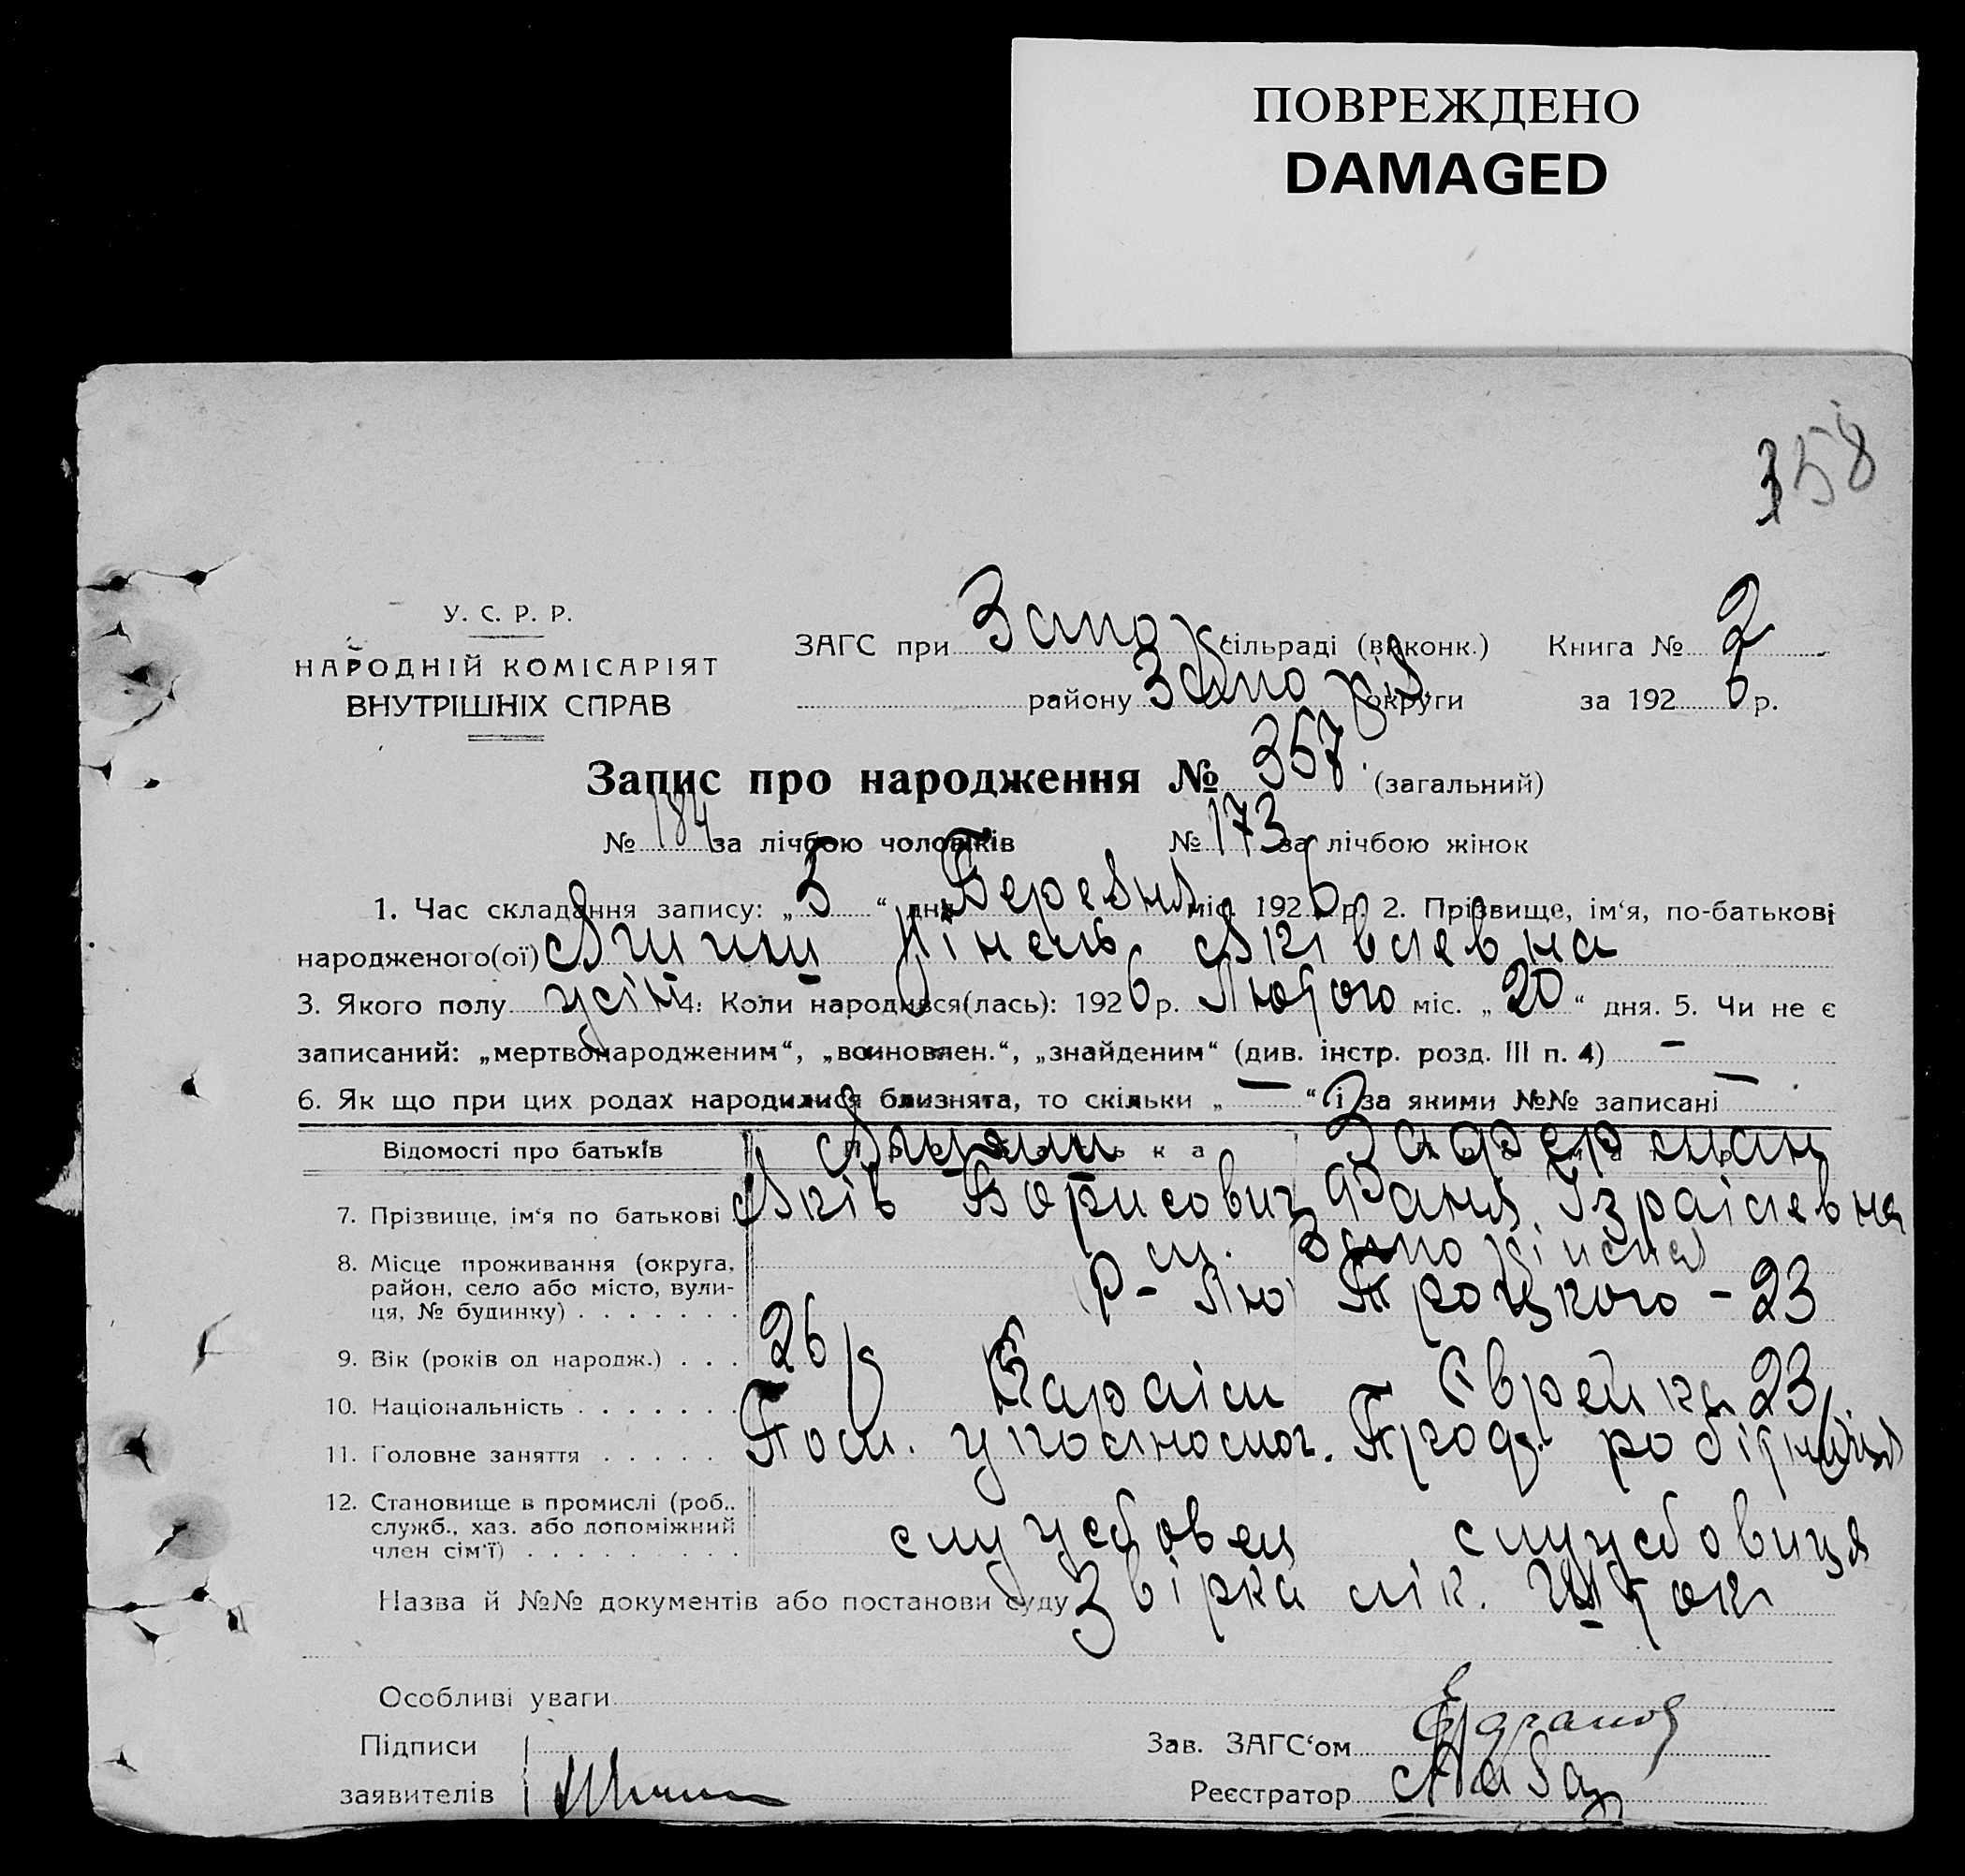 ПОВРЕЖДЕНО
DAMAGED
358
У. С. Р. Р.
НАРОДНІЙ КОМІСАРІЯТ
ВНУТРІШНІХ СПРАВ
ЗАГС при Запо сільраді (виконк.) Книга № 2
району Запоріз округи за 1926 р.
Запис про народження № 357. (загальний)
№ 184 за лічбою чоловіків № 173 за лічбою жінок
1. Час складання запису: „5“ дня Березня міс. 1926 р. 2. Прізвище, ім‘я, по-батькові
народженого(ої) Яківлевна
3. Якого полу жін 4. Коли народився(лась): 1926 р. Лютого міс. „20“ дня. 5. Чи не є
записаний: „мертвонародженим“, „воиновлен.“, „знайденим“ (див. інстр. розд. III п. 4) –
6. Як що при цих родах народилися близнята, то скільки „—“ і за якими №№ записані —
Відомості про батьків Заферман
7. Прізвище, ім‘я по батькові Яків Борисович Фаня Ізраілевна
8. Місце проживання (округа, м.
район, село або місто, вули- Р-Лю Троцкого – 23
ця, № будинку)
9. Вік (років од народж.) 26 23
10. Національність Караім Єврейка
11. Головне заняття Пом. робітниця
12. Становище в промислі (роб.,
служб., хаз. або допоміжний службовец службовиця
член сім‘ї)
Назва й №№ документів або постанови суду Звірка лік. Шток
Особливі уваги
Підписи Зав. ЗАГС‘ом
заявителів Реєстратор